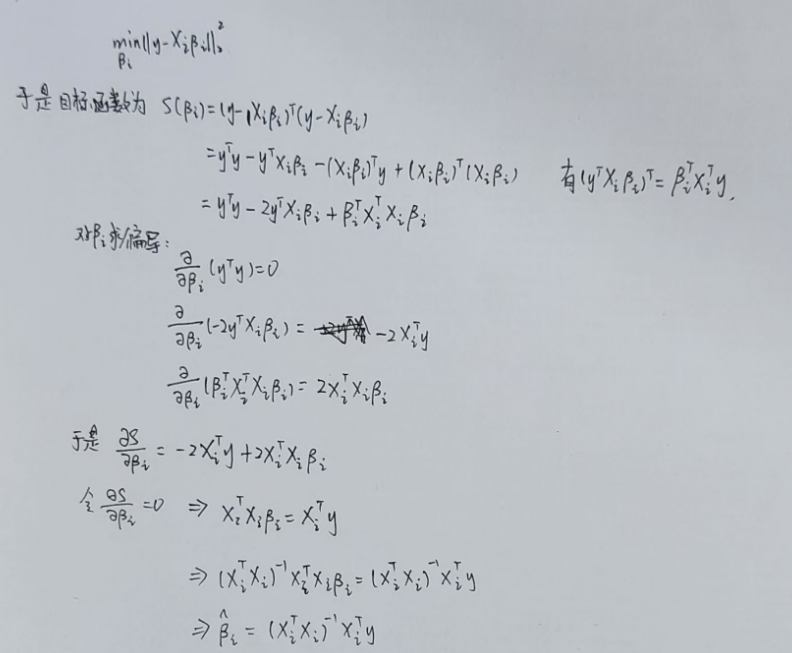 min_{β_i} ||y-X_iβ_i||_2^2
于是目标函数为 S(β_i)=(y-X_iβ_i)^T(y-X_iβ_i)
=y^Ty-y^TX_iβ_i-(X_iβ_i)^Ty+(X_iβ_i)^T(X_iβ_i) 有(y^TX_iβ_i)^T=β_i^TX_i^Ty,
=y^Ty-2y^TX_iβ_i+β_i^TX_i^TX_iβ_i
对β_i求偏导:
∂/∂β_i (y^Ty)=0
∂/∂β_i (-2y^TX_iβ_i)= -2X_i^Ty
∂/∂β_i (β_i^TX_i^TX_iβ_i)=2X_i^TX_iβ_i
于是 ∂S/∂β_i = -2X_i^Ty+2X_i^TX_iβ_i
令 ∂S/∂β_i =0 ⇒ X_i^TX_iβ_i=X_i^Ty
⇒ (X_i^TX_i)^{-1}X_i^TX_iβ_i=(X_i^TX_i)^{-1}X_i^Ty
⇒ β̂_i = (X_i^TX_i)^{-1}X_i^Ty